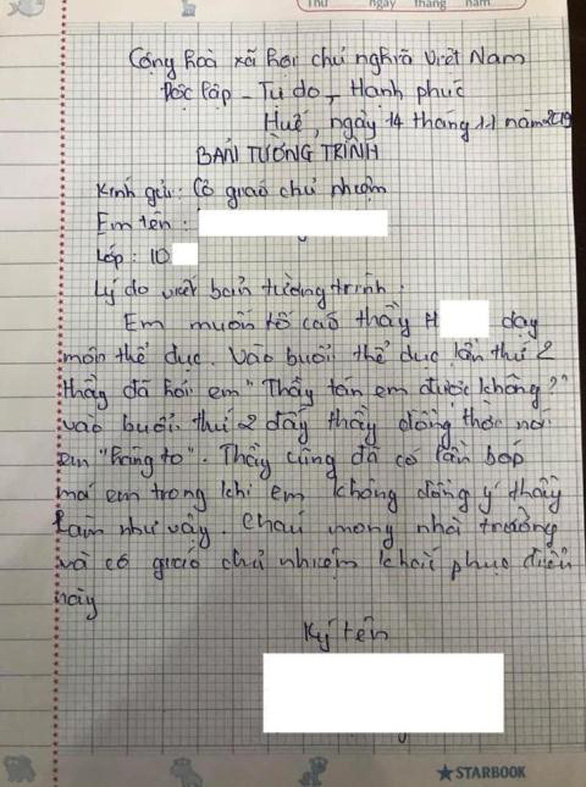 Thứ ngày tháng năm
Cộng hoà xã hội chủ nghĩa Việt Nam
Độc lập - Tự do - Hạnh phúc
Huế, ngày 14 tháng 11 năm 2019
BẢN TƯỜNG TRÌNH
Kính gửi: Cô giáo chủ nhiệm
Em tên:
Lớp: 10
Lý do viết bản tường trình.
Em muốn tố cáo thầy H dạy
môn thể dục. Vào buổi thể dục lần thứ 2
thầy đã hỏi em "Thầy tán em được không?"
vào buổi thứ 2 đấy thầy đồng thời nói
em "hàng to". Thầy cũng đã có lần bóp
má em trong khi em không đồng ý thầy
làm như vậy. Cháu mong nhà trường
và cô giáo chủ nhiệm khắc phục điều
này
Ký tên
STARBOOK